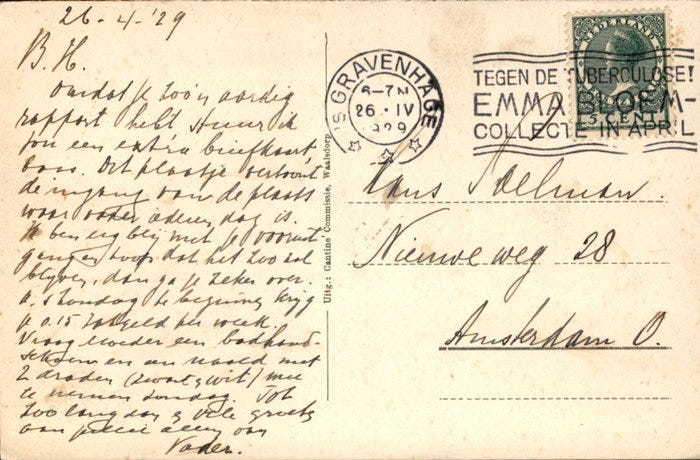 26-4-'29
B. H.
Omdat je zoo'n aardig
rapport hebt stuur ik
jou een extra briefkaart
Dit plaatje vertoont
de ingang van de plaats
waar vader iederen dag is.
Ik ben erg blij met je vooruit-
gang en hoop dat het zoo zal
blijven, dan ga je zeker over.
A.s. Zondag te beginnen krijg
je 0.15 zakgeld per week.
Vraag Moeder een badhand-
schoen en een naald met
2 draden (zwart & wit) mee
te nemen Zondag. Tot
zoo lang dag & vele groeten
aan jullie allen van
Vader.
Uitg.: Cantine Commissie, Waalsdorp
'S GRAVENHAGE
6-7N
26.IV
1929
TEGEN DE TUBERCULOSE!
EMMA BLOEM-
COLLECTE IN APRIL
NEDERLAND
5 CENT
Hans Poelman.
Nieuwe weg 28
Amsterdam O.